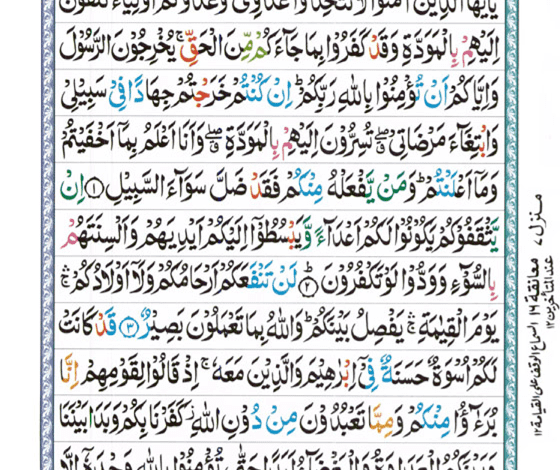 يٰۤاَيُّهَا الَّذِيْنَ اٰمَنُوْا لَا تَتَّخِذُوْا عَدُوِّيْ وَعَدُوَّكُمْ اَوْلِيَآءَ تُلْقُوْنَ
اِلَيْهِمْ بِالْمَوَدَّةِ وَقَدْ كَفَرُوْا بِمَا جَآءَكُمْ مِّنَ الْحَقِّ ۚ يُخْرِجُوْنَ الرَّسُوْلَ
وَاِيَّاكُمْ اَنْ تُؤْمِنُوْا بِاللّٰهِ رَبِّكُمْ ؕ اِنْ كُنْتُمْ خَرَجْتُمْ جِهَادًا فِيْ سَبِيْلِيْ
وَابْتِغَآءَ مَرْضَاتِيْ ۖۗ تُسِرُّوْنَ اِلَيْهِمْ بِالْمَوَدَّةِ ۖۗ وَاَنَا اَعْلَمُ بِمَاۤ اَخْفَيْتُمْ
وَمَاۤ اَعْلَنْتُمْ ؕ وَمَنْ يَّفْعَلْهُ مِنْكُمْ فَقَدْ ضَلَّ سَوَآءَ السَّبِيْلِ ۝۱ اِنْ
يَّثْقَفُوْكُمْ يَكُوْنُوْا لَكُمْ اَعْدَآءً وَّيَبْسُطُوْۤا اِلَيْكُمْ اَيْدِيَهُمْ وَاَلْسِنَتَهُمْ
بِالسُّوْٓءِ وَوَدُّوْا لَوْ تَكْفُرُوْنَ ۝۲ؕ لَنْ تَنْفَعَكُمْ اَرْحَامُكُمْ وَلَاۤ اَوْلَادُكُمْ ۛۚ
يَوْمَ الْقِيٰمَةِ ۛۚ يَفْصِلُ بَيْنَكُمْ ؕ وَاللّٰهُ بِمَا تَعْمَلُوْنَ بَصِيْرٌ ۝۳ قَدْ كَانَتْ
لَكُمْ اُسْوَةٌ حَسَنَةٌ فِيْۤ اِبْرٰهِيْمَ وَالَّذِيْنَ مَعَهٗ ۚ اِذْ قَالُوْا لِقَوْمِهِمْ اِنَّا
بُرَءٰٓؤُا مِنْكُمْ وَمِمَّا تَعْبُدُوْنَ مِنْ دُوْنِ اللّٰهِ ؗ كَفَرْنَا بِكُمْ وَبَدَا بَيْنَنَا
وَبَيْنَكُمُ الْعَدَاوَةُ وَالْبَغْضَآءُ اَبَدًا حَتّٰى تُؤْمِنُوْا بِاللّٰهِ وَحْدَهٗۤ اِلَّا
منزل ۷
معانقة ۱۶
عند المتأخرين ۱۲